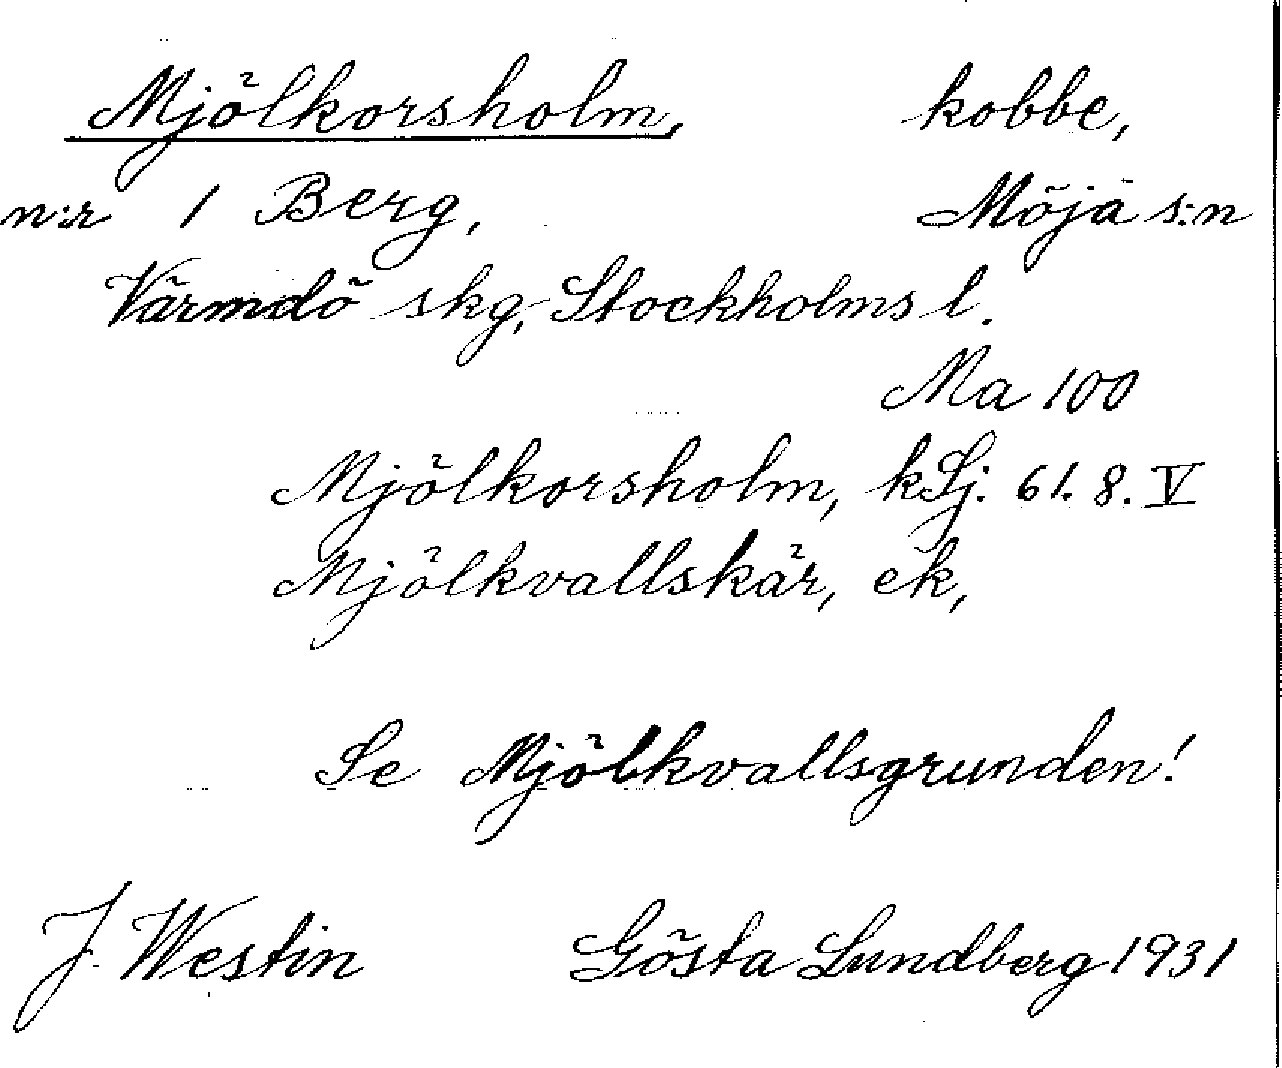 Mjölkorsholm, kobbe,
n:r 1 Berg, Möja s:n
Värmdö skg, Stockholms l.
Ma 100
Mjölkorsholm, kSj. 61. 8. V
Mjölkvallskär, ek,
Se Mjölkvallsgrunden!
J. Westin Gösta Lundberg 1931